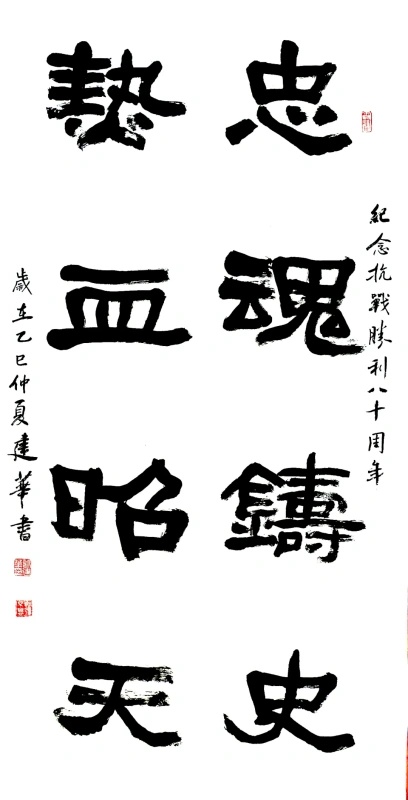 紀念抗戰勝利八十周年
忠魂鑄史
熱血昭天
歲在乙巳仲夏建華書